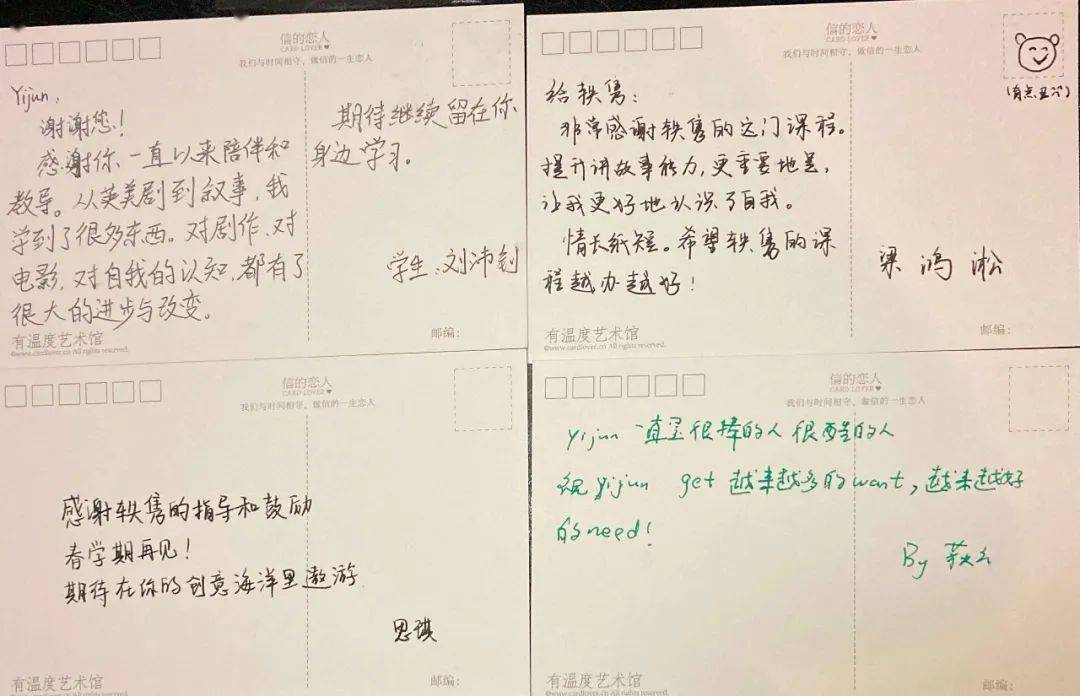 信的恋人
CARD LOVER
我们与时间相守，做信的一生恋人
Yijun，
谢谢您！
感谢你、一直以来陪伴和
教导。从英美剧到叙事，我
学到了很多东西。对剧作、对
电影、对自我的认知、都有了
很大的进步与改变。
期待继续留在你
身边学习。
学生：刘沛钊
有温度艺术馆
©www.cardlover.cn All rights reserved.
邮编：
信的恋人
CARD LOVER
我们与时间相守，做信的一生恋人
给轶隽：
非常感谢轶隽的这门课程。
提升讲故事能力，更重要地是，
让我更好地认识了自我。
情长纸短。希望轶隽的课
程越办越好！
（有点丑
梁鸿淞
有温度艺术馆
©www.cardlover.cn All rights reserved.
邮编：
信的恋人
CARD LOVER
我们与时间相守，做信的一生恋人
感谢轶隽的指导和鼓励
春学期再见！
期待在你的创意海洋里遨游
思琪
有温度艺术馆
©www.cardlover.cn All rights reserved.
邮编：
信的恋人
CARD LOVER
我们与时间相守，做信的一生恋人
Yijun 一直是很棒的人 很酷的人
祝 Yijun get 越来越多的want，越来越好
的need！
By
有温度艺术馆
©www.cardlover.cn All rights reserved.
邮编：